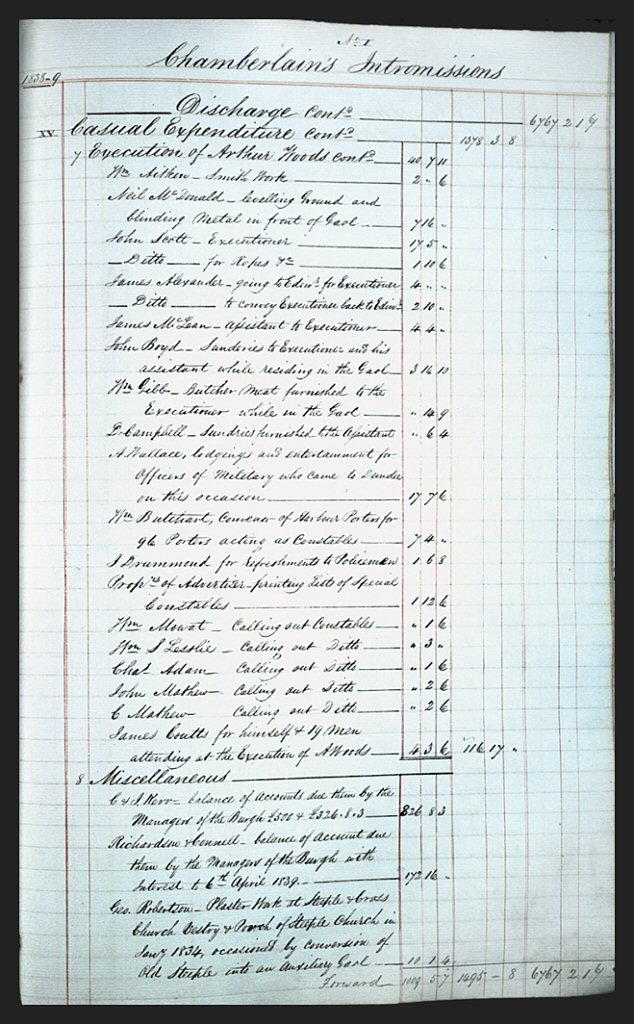 No. I
Chamberlain's Intromissions
1838-9
Discharge Cont.d 6767 2 1
XV Casual Expenditure Cont.d 1378 3 8
7 Execution of Arthur Woods cont.d 40 7 11
Wm Aitken - Smith Work 2 " 6
Neil McDonald - levelling Ground and
blinding Metal in front of Gaol 7 16 "
John Scott - Executioner 17 5 "
- Ditto - for Ropes &c 1 10 6
James Alexander - going to Edinr. for Executioner 4 " "
- Ditto - to convey Executioner back to Edinr. 2 10 "
James McLean - Assistant to Executioner 4 4 "
John Boyd - Sunderies to Executioner and his
assistant while residing in the Gaol 3 16 10
Wm Gibb - Butcher Meat furnished to the
Executioner while in the Gaol " 14 9
D. Campbell - Sundries furnished to the Assistant " 6 4
A Wallace, lodgings and entertainment for
Officers of Military who came to Dundee
on this occasion 17 7 6
Wm Butchart, Convenor of Harbour Porters for
96 Porters acting as Constables 7 4 "
J Drummond for refreshments to Policemen 1 6 8
Proprs. of Advertiser - printing Lists of Special
Constables 1 12 6
Wm Mowat - Calling out Constables " 1 6
Wm S Lesslie - Calling out Ditto " 3 "
Chas. Adam - Calling out Ditto " 1 6
John Mathew - Calling out Ditto " 2 6
C Mathew Calling out Ditto " 2 6
James Coutts for himself & 19 Men
attending at the Execution of A Woods 4 3 6 116 17 "
8 Miscellaneous
C & J. Kerr - balance of Accounts due them by the
Managers of the Burgh £500 & £326.8.3 826 8 3
Richardson & Connell - balance of Account due
them by the Managers of the Burgh with
Interest to 6th April 1839. 172 16 "
Geo. Robertson - Plaster Work at Steeple & Cross
Church Vestry & Porch of Steeple Church in
Jany 1834, occasioned by conversion of
Old Steeple into an Auxiliary Gaol 10 1 4
Forward 1009 5 7 1495 - 8 6767 2 1